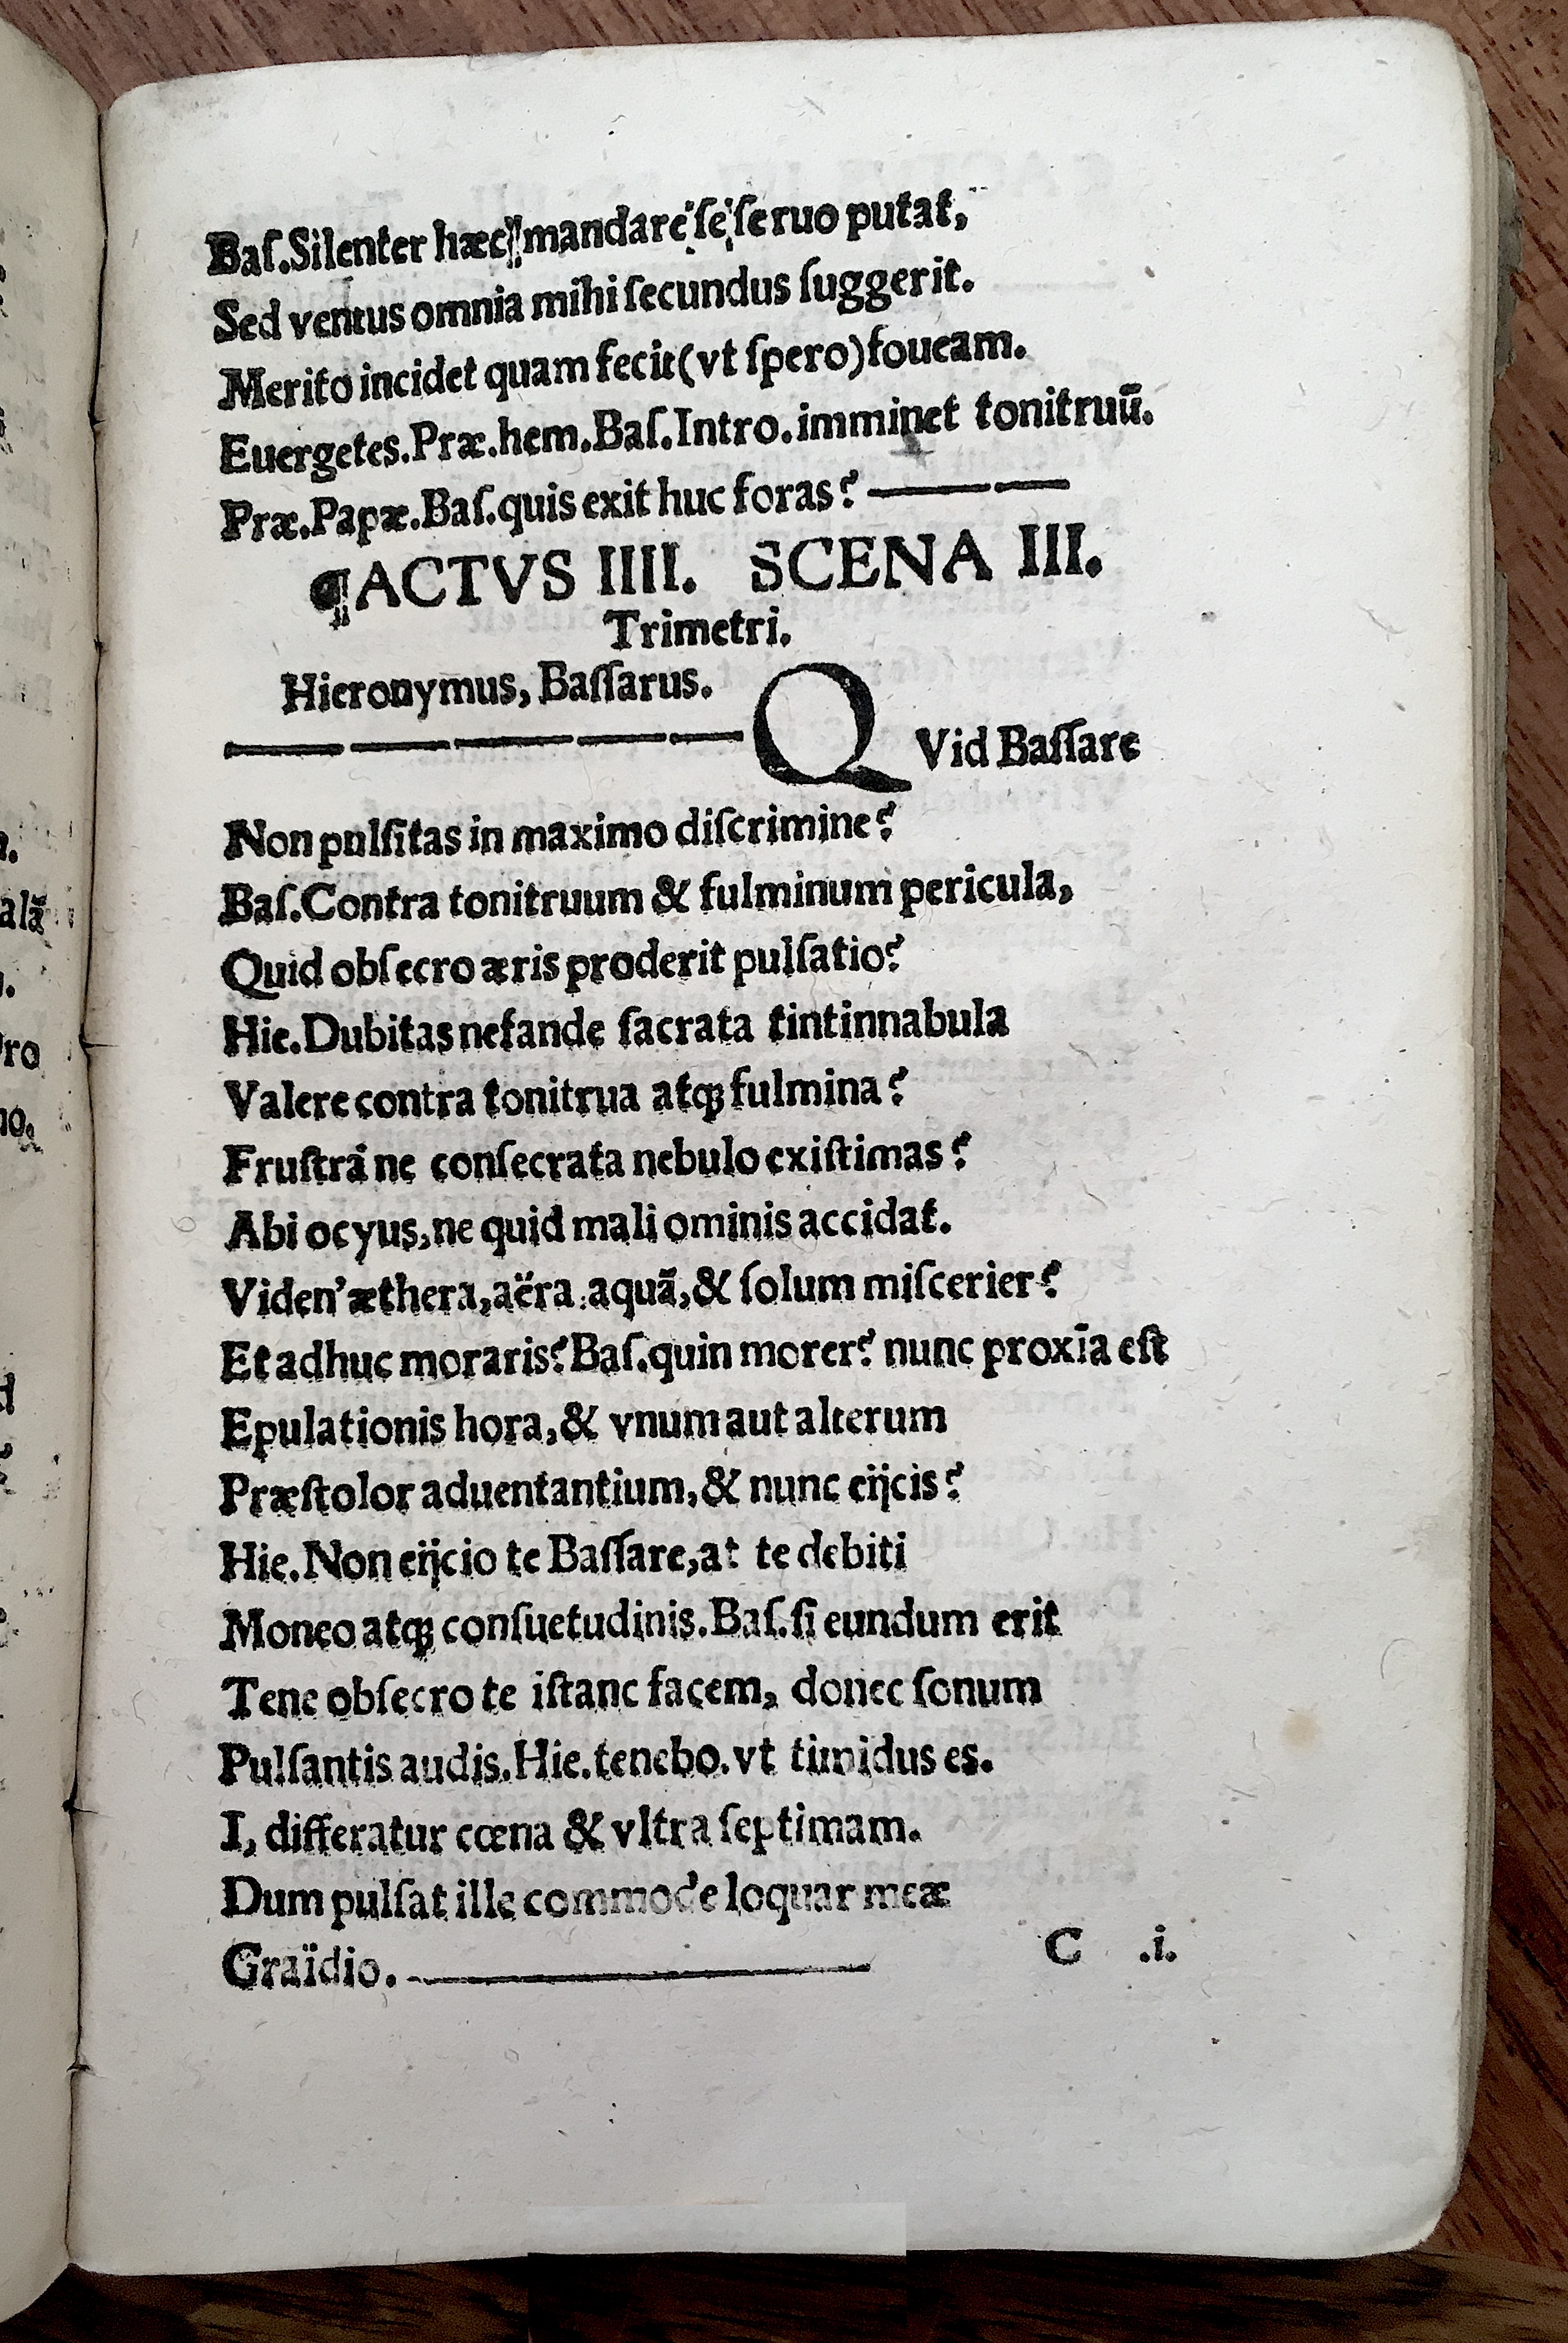 Baſ.Silenter hæc mandare ſe ſeruo putat,
Sed ventus omnia mihi ſecundus ſuggerit.
Merito incidet quam fecit(vt ſpero)foueam.
Euergetes.Præ.hem.Baſ.Intro.imminet tonitruū.
Præ.Papæ.Baſ.quis exit huc foras?
¶ACTVS IIII. SCENA III.
Trimetri.
Hieronymus, Baſſarus.
QVid Baſſare
Non pulſitas in maximo diſcrimine?
Baſ.Contra tonitruum & fulminum pericula,
Quid obſecro æris proderit pulſatio?
Hie.Dubitas nefande ſacrata tintinnabula
Valere contra tonitrua atq; fulmina?
Fruſtrá ne conſecrata nebulo exiſtimas?
Abi ocyus,ne quid mali ominis accidat.
Viden'æthera,aëra,aquā,& ſolum miſcerier?
Et adhuc moraris?Baſ.quin morer? nunc proxīa eſt
Epulationis hora,& vnum aut alterum
Præſtolor aduentantium,& nunc eijcis?
Hie.Non eijcio te Baſſare,at te debiti
Moneo atq; conſuetudinis.Baſ.ſi eundum erit
Tene obſecro te iſtanc facem, donec ſonum
Pulſantis audis.Hie.tenebo.vt timidus es.
I, differatur cœna & vltra ſeptimam.
Dum pulſat ille commode loquar meæ
Graïdio.
C .i.
alā
ro
no.
d